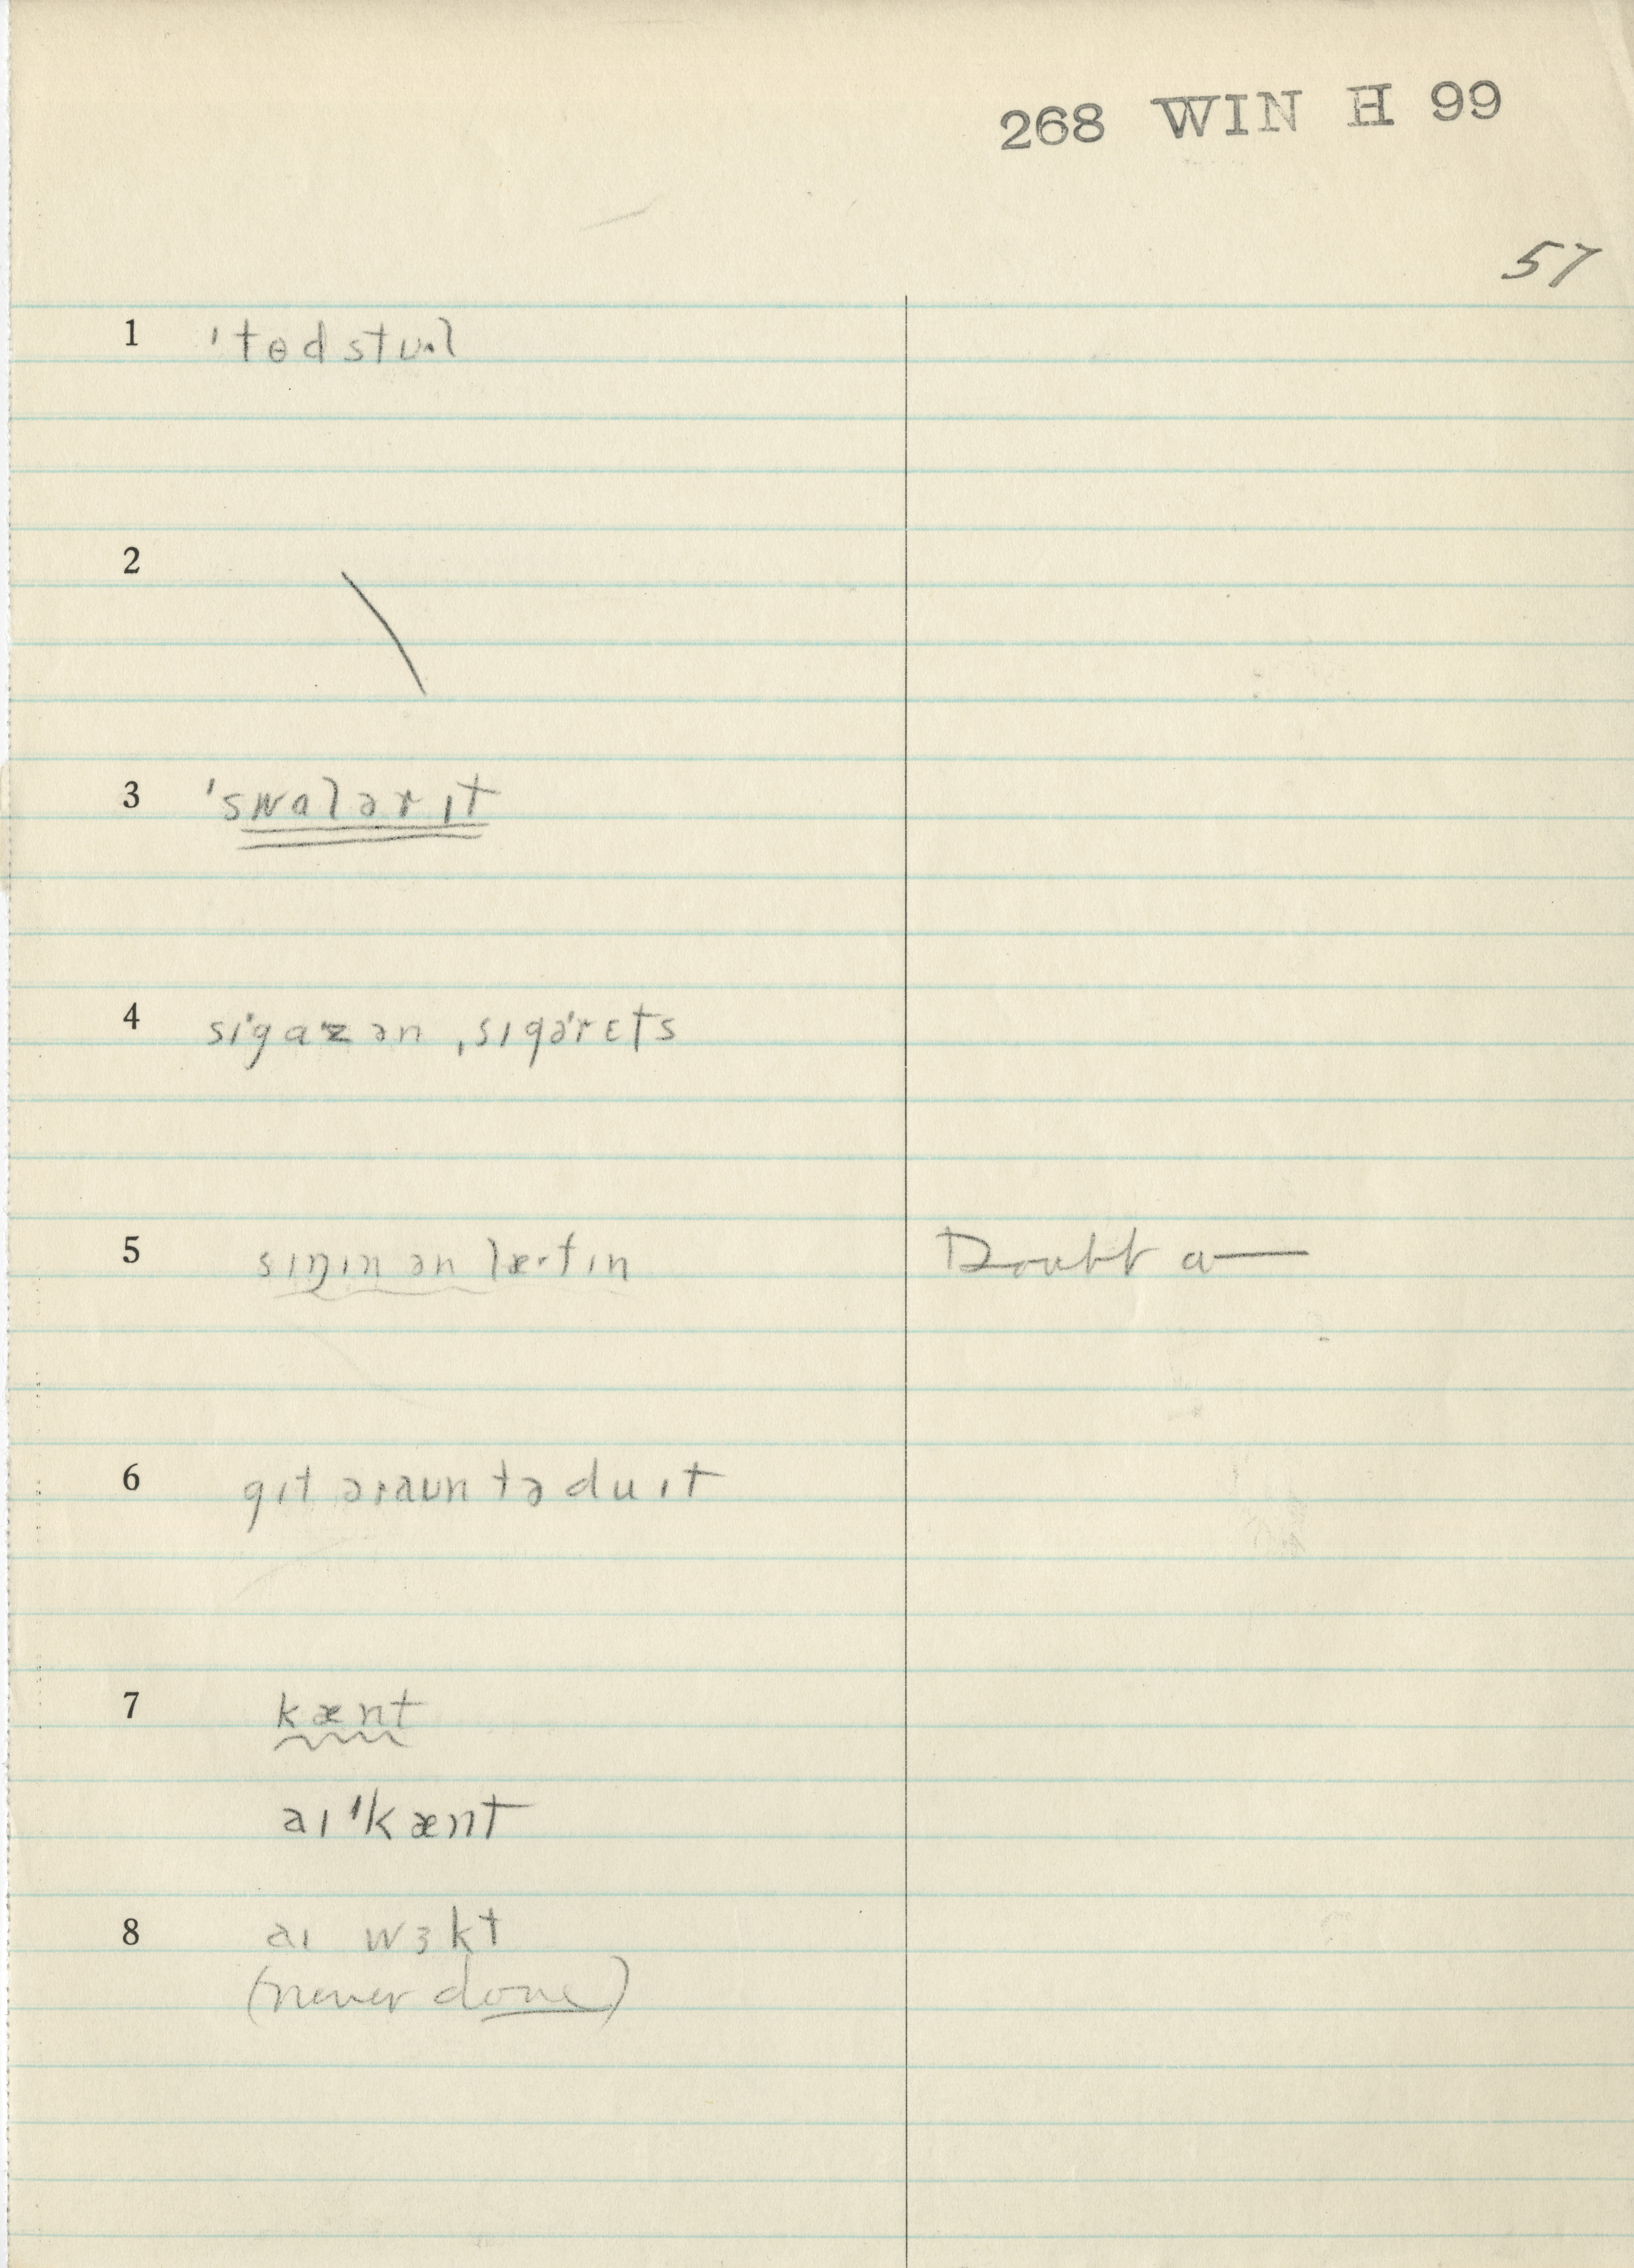 268 WIN H 99
57
1 'tɵdstuˑl
2
3 'swɑlərɪt
4 sɪ'gaˑz ən ˌsɪgə'rɛts
5 sɪŋɪn ən læˑfɪn Doubt a—
6 gɪt əraun tə du ɪt
7 kænt
aɪ 'kænt
8 aɪ wɜkt
(never done)